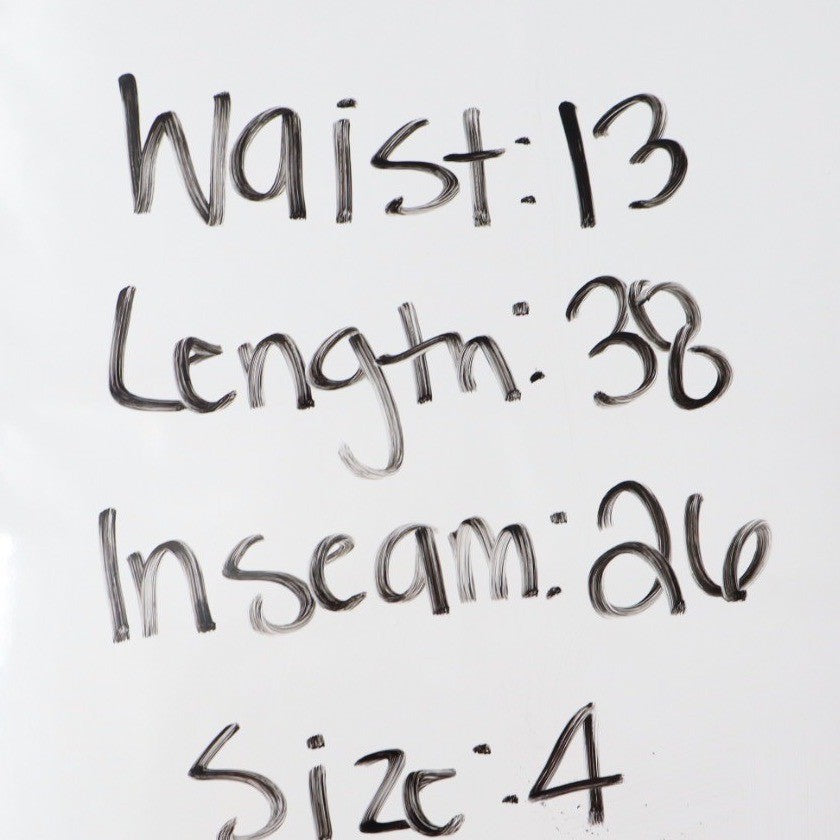 Waist: 13
Length: 38
Inseam: 26
Size: 4